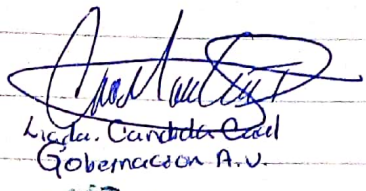 Licda. Candida Caal
Gobernacion A.V.